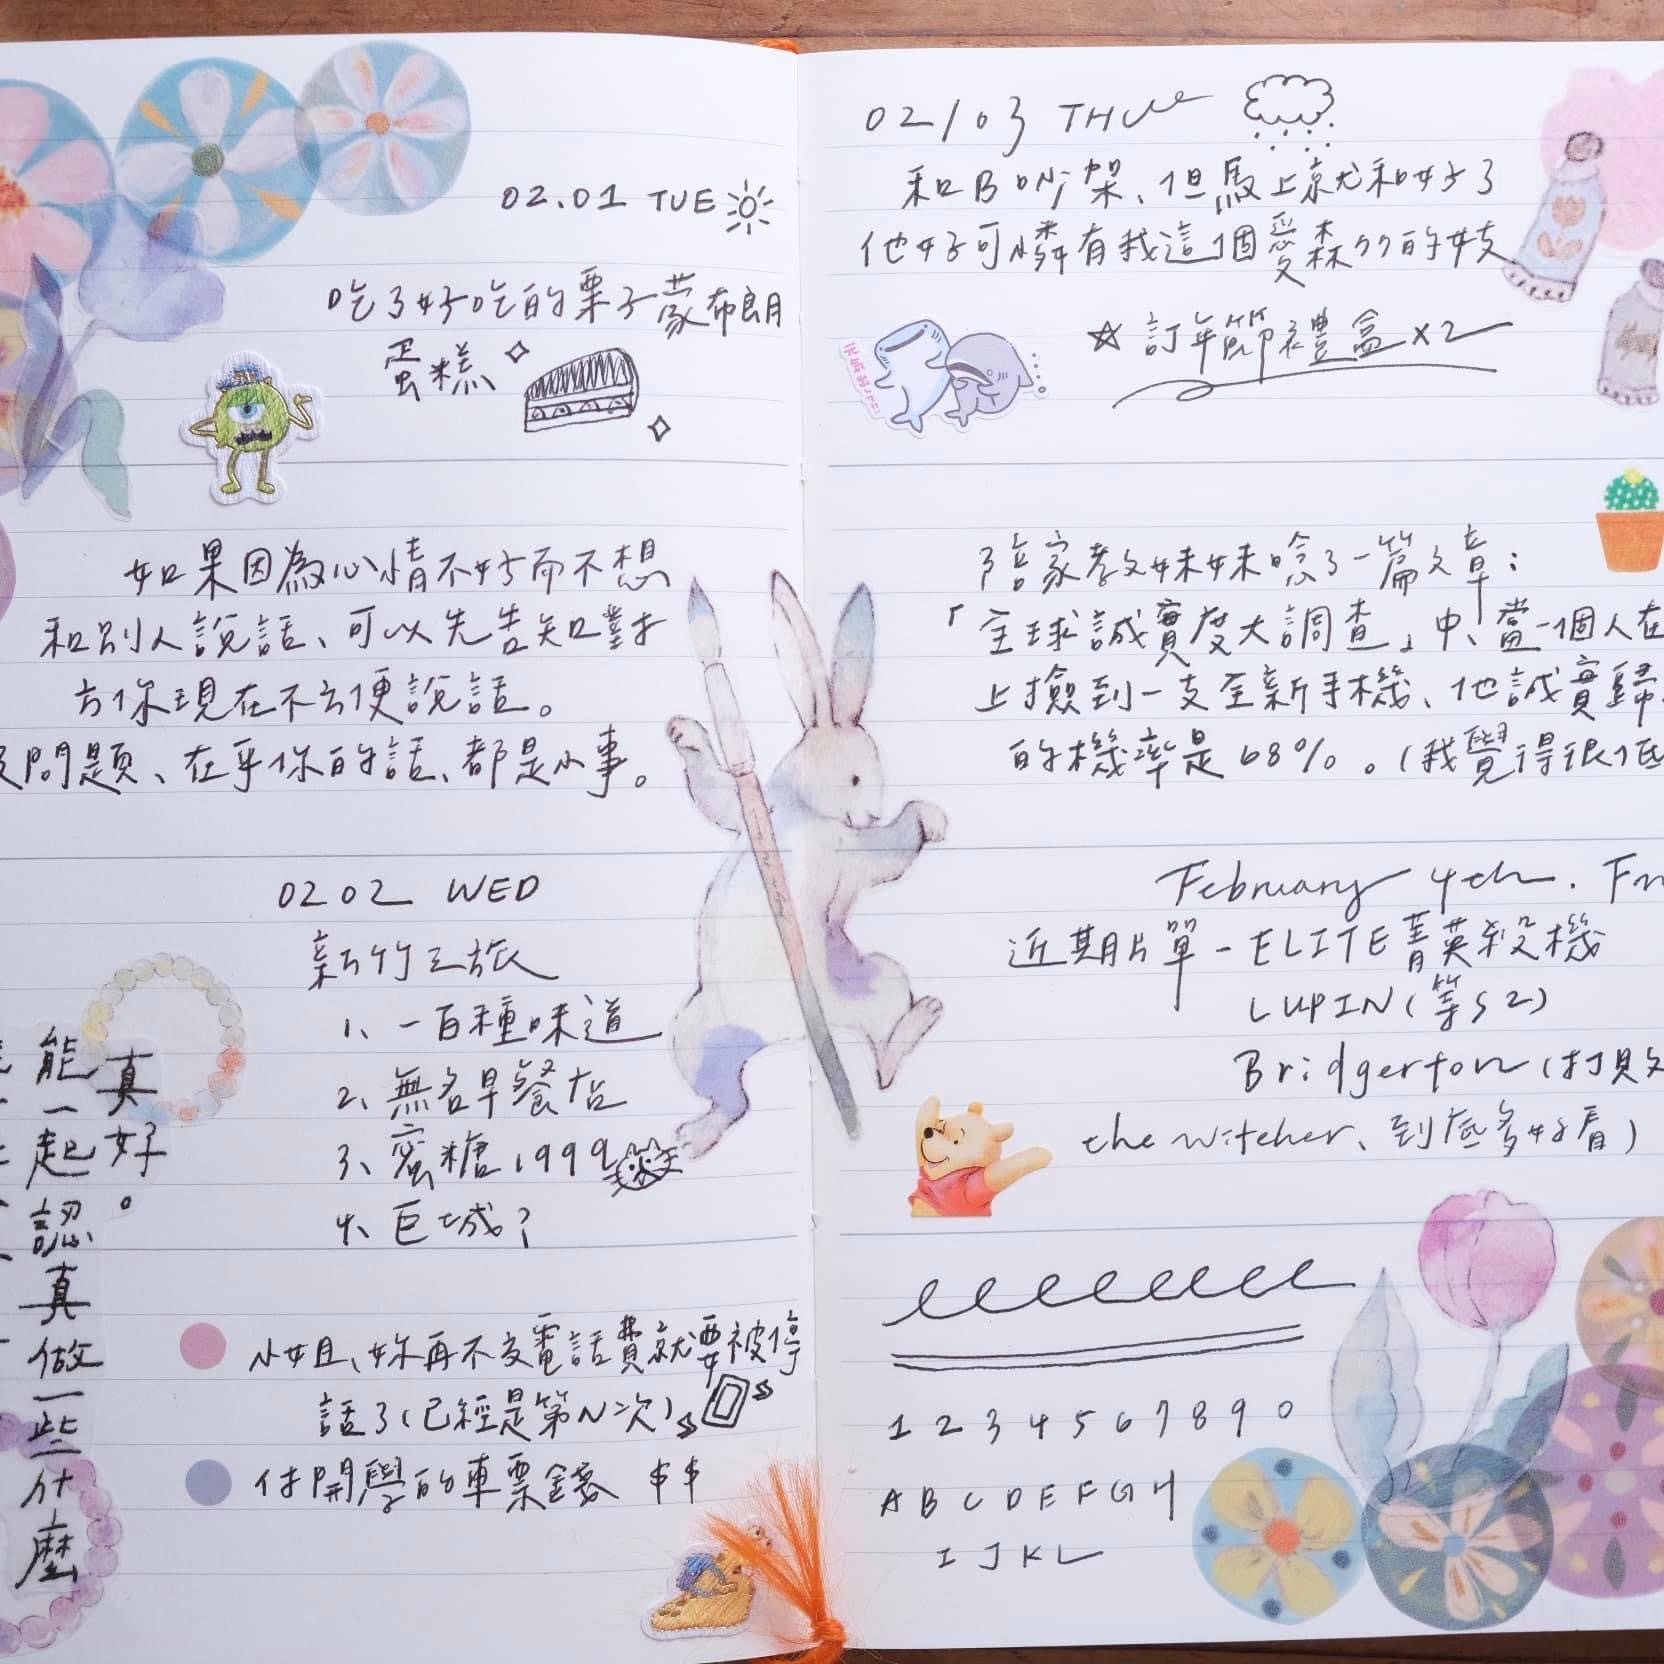 02.01 TUE
吃了好吃的栗子蒙布朗
蛋糕
如果因為心情不好而不想
和別人說話、可以先告知對
方你現在不方便說話。
問題、在乎你的話、都是小事。
0202 WED
新竹之旅
1、一百種味道
2、無名早餐店
3、蜜糖1999
4、巨城?
真好。
能一起認真做一些什麼
小姐、妳再不交電話費就要被停
話了(已經是第N次)
付開學的車票錢 $$
02/03 THU
和B吵架、但馬上就和好了
他好可憐有我這個愛森77的女友
☆ 訂年節禮盒x2
陪家教妹妹唸了一篇文章:
「全球誠實度大調查」中、當一個人在
上撿到一支全新手機、他誠實歸
的機率是68%。(我覺得很低
February 4th. Fri
近期片單-ELITE菁英殺機
LUPIN(等S2)
Bridgerton(打敗
the witcher、到底多好看)
1 2 3 4 5 6 7 8 9 0
A B C D E F G H
I J K L